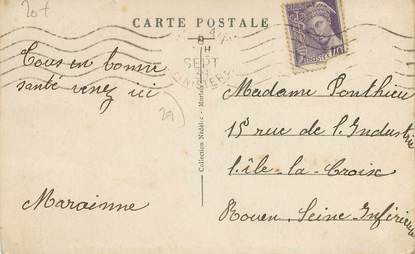 20f
CARTE POSTALE
8 H
SEPT
POSTES
Tous en bonne
santé venez ici
29
Maroinne
Collection Nédélic
Madame Ponthieu
15 rue de l'Industrie
l'île-la-Croix
Rouen Seine Inférieure